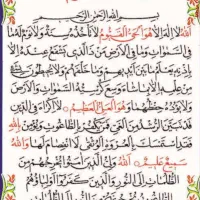 بسم الله الرحمن الرحيم
الله لا إله إلا هو الحي القيوم لا تأخذه سنة ولا نوم له ما
في السموات وما في الأرض من ذا الذي يشفع عنده إلا
بإذنه يعلم ما بين أيديهم وما خلفهم ولا يحيطون بشيء
من علمه إلا بما شاء وسع كرسيه السموات والأرض
ولا يؤده حفظهما وهو العلي العظيم لا إكراه في الدين
قد تبين الرشد من الغي فمن يكفر بالطاغوت ويؤمن بالله
فقد استمسك بالعروة الوثقى لا انفصام لها والله
سميع عليم الله ولي الذين آمنوا يخرجهم من
الظلمات إلى النور والذين كفروا أولياؤهم